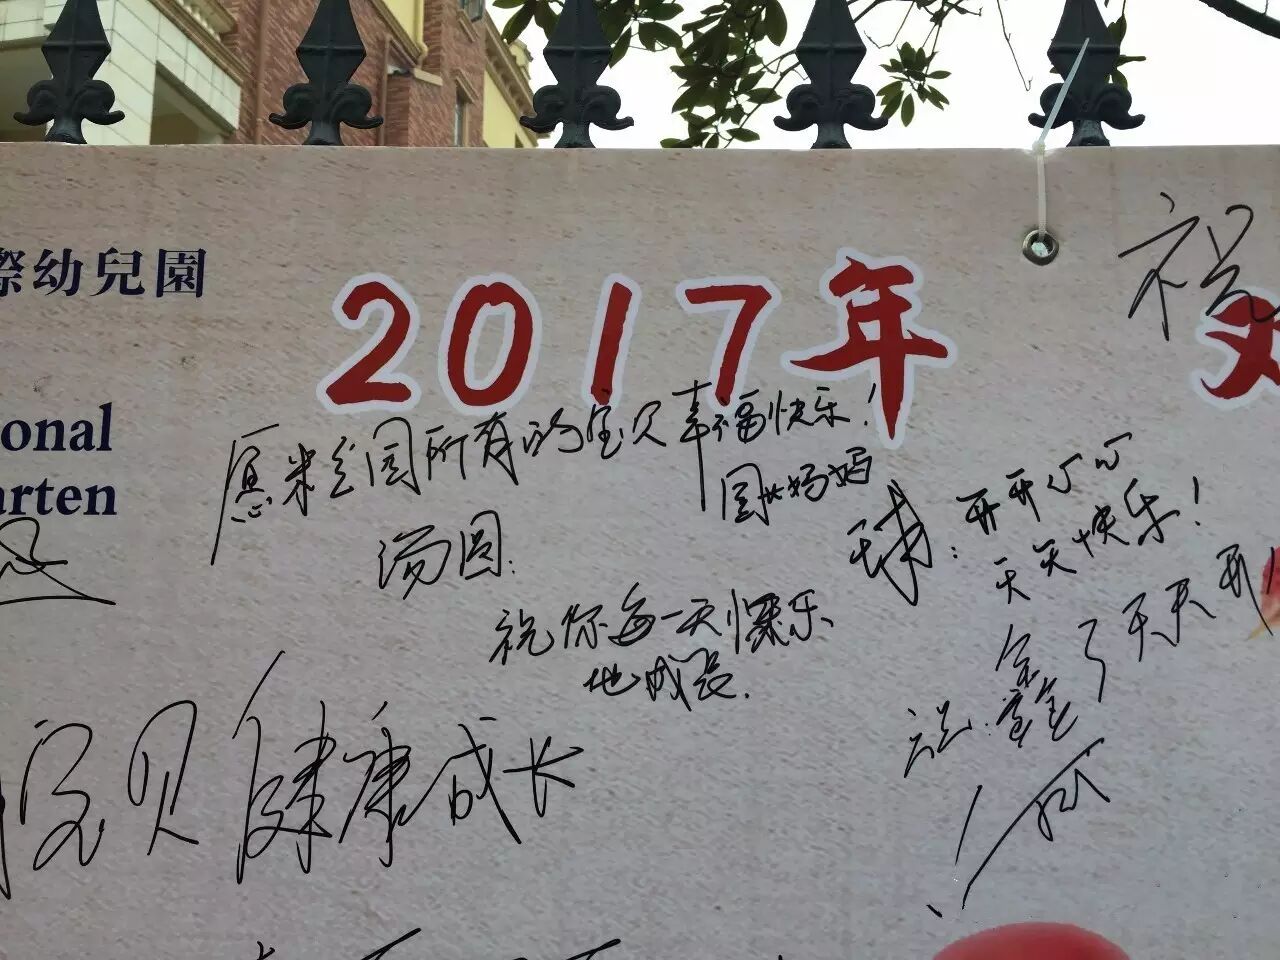 際幼兒園
2017年
祝
onal
arten
愿米兰园所有的宝贝幸福快乐!
妈妈
汤圆.
祝你每一天快乐
地成长.
球:开开心心
天天快乐!
祝:鑫了天天开
宝贝健康成长